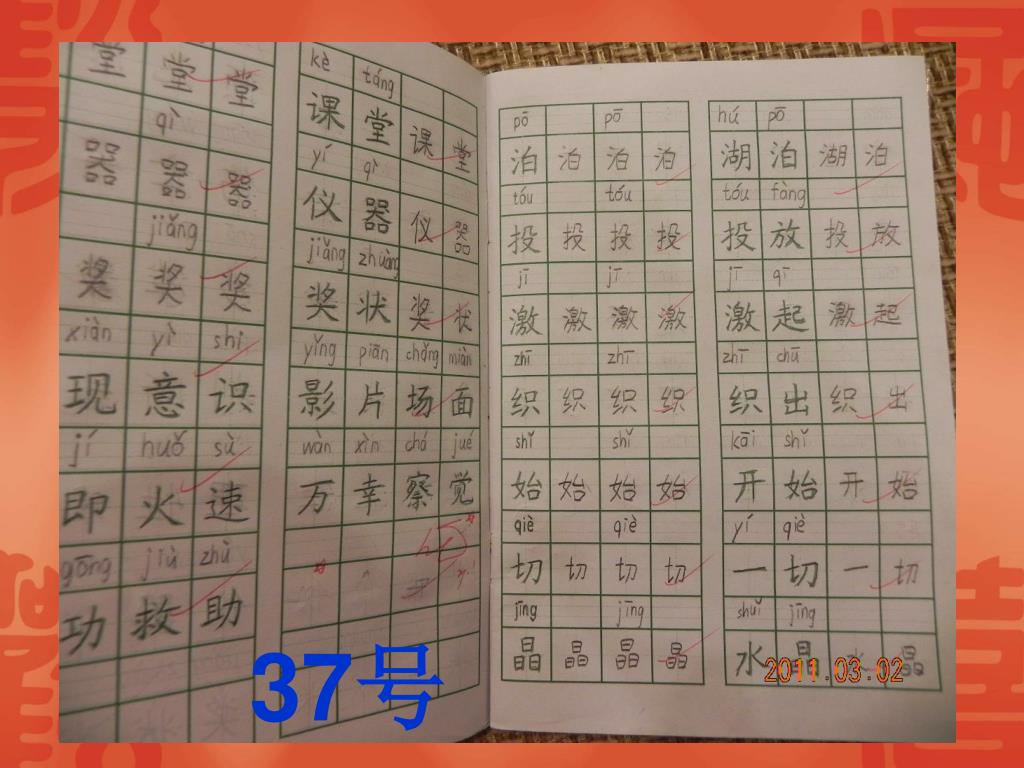 堂 堂 堂
qì
器 器 器
jiǎng
奖 奖 奖
xiàn yì shi
现 意 识
jí huǒ sù
即 火 速
gōng jiù zhù
功 救 助
kè táng
课 堂 课 堂
yí qì
仪 器 仪 器
jiǎng zhuàng
奖 状 奖 状
yǐng piān chǎng miàn
影 片 场 面
wàn xìn chá jué
万 幸 察 觉
pō pō
泊 泊 泊 泊
tóu tóu
投 投 投 投
jī jī
激 激 激 激
zhī zhī
织 织 织 织
shǐ shǐ
始 始 始 始
qiè qiè
切 切 切 切
jīng jīng
晶 晶 晶 晶
hú pō
湖 泊 湖 泊
tóu fàng
投 放 投 放
jī qǐ
激 起 激 起
zhī chū
织 出 织 出
kāi shǐ
开 始 开 始
yí qiè
一 切 一 切
shuǐ jīng
水 晶 水 晶
37号
2011.03.02